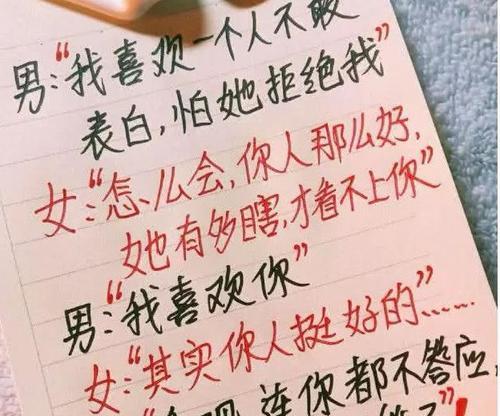 男:“我喜欢一个人不敢
表白,怕她拒绝我”
女:“怎么会,你人那么好,
她有多瞎,才看不上你”
男:“我喜欢你”
女:“其实你人挺好的”……
连你都不答应,